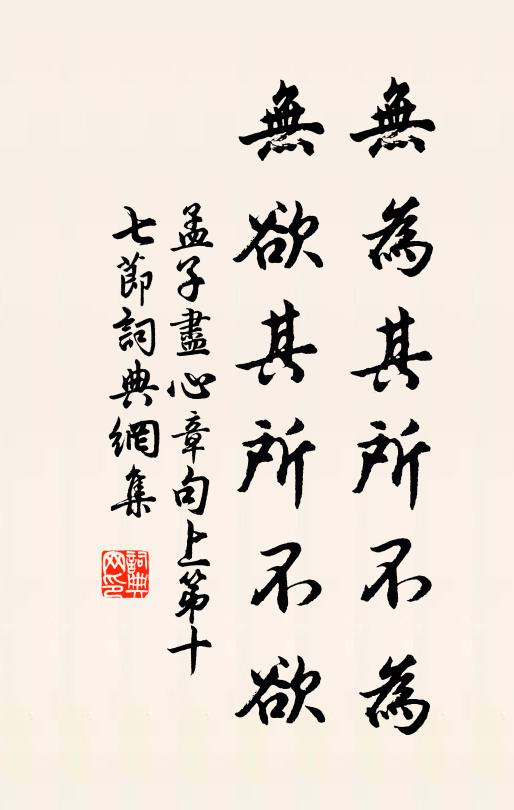 無為其所不為
無欲其所不欲
孟子盡心章句上第十
七節詞典網集
詞典
网印